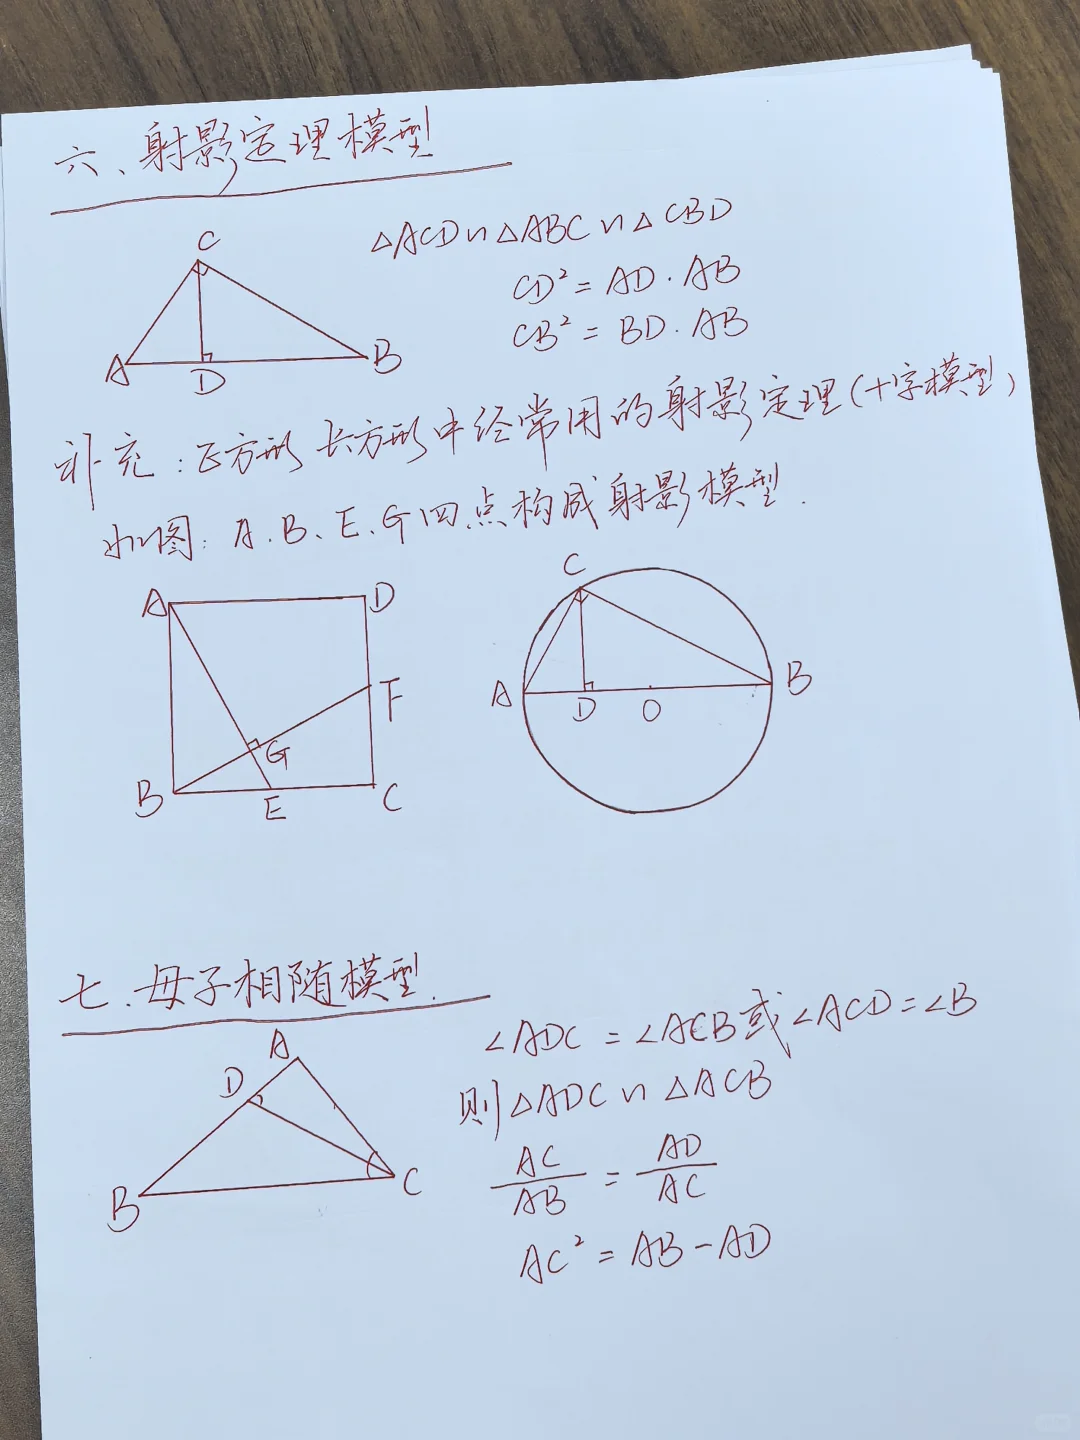 六、射影定理模型
△ACD∽△ABC∽△CBD
CD²=AD·AB
CB²=BD·AB
C
A
D
B
补充:正方形长方形中经常用的射影定理(十字模型)
如图:A.B、E.G四点构成射影模型.
A
D
F
G
B
E
C
C
A
D
O
B
七.母子相随模型.
A
D
B
C
∠ADC=∠ACB或∠ACD=∠B
则△ADC∽△ACB
AC/AB=AD/AC
AC²=AB-AD